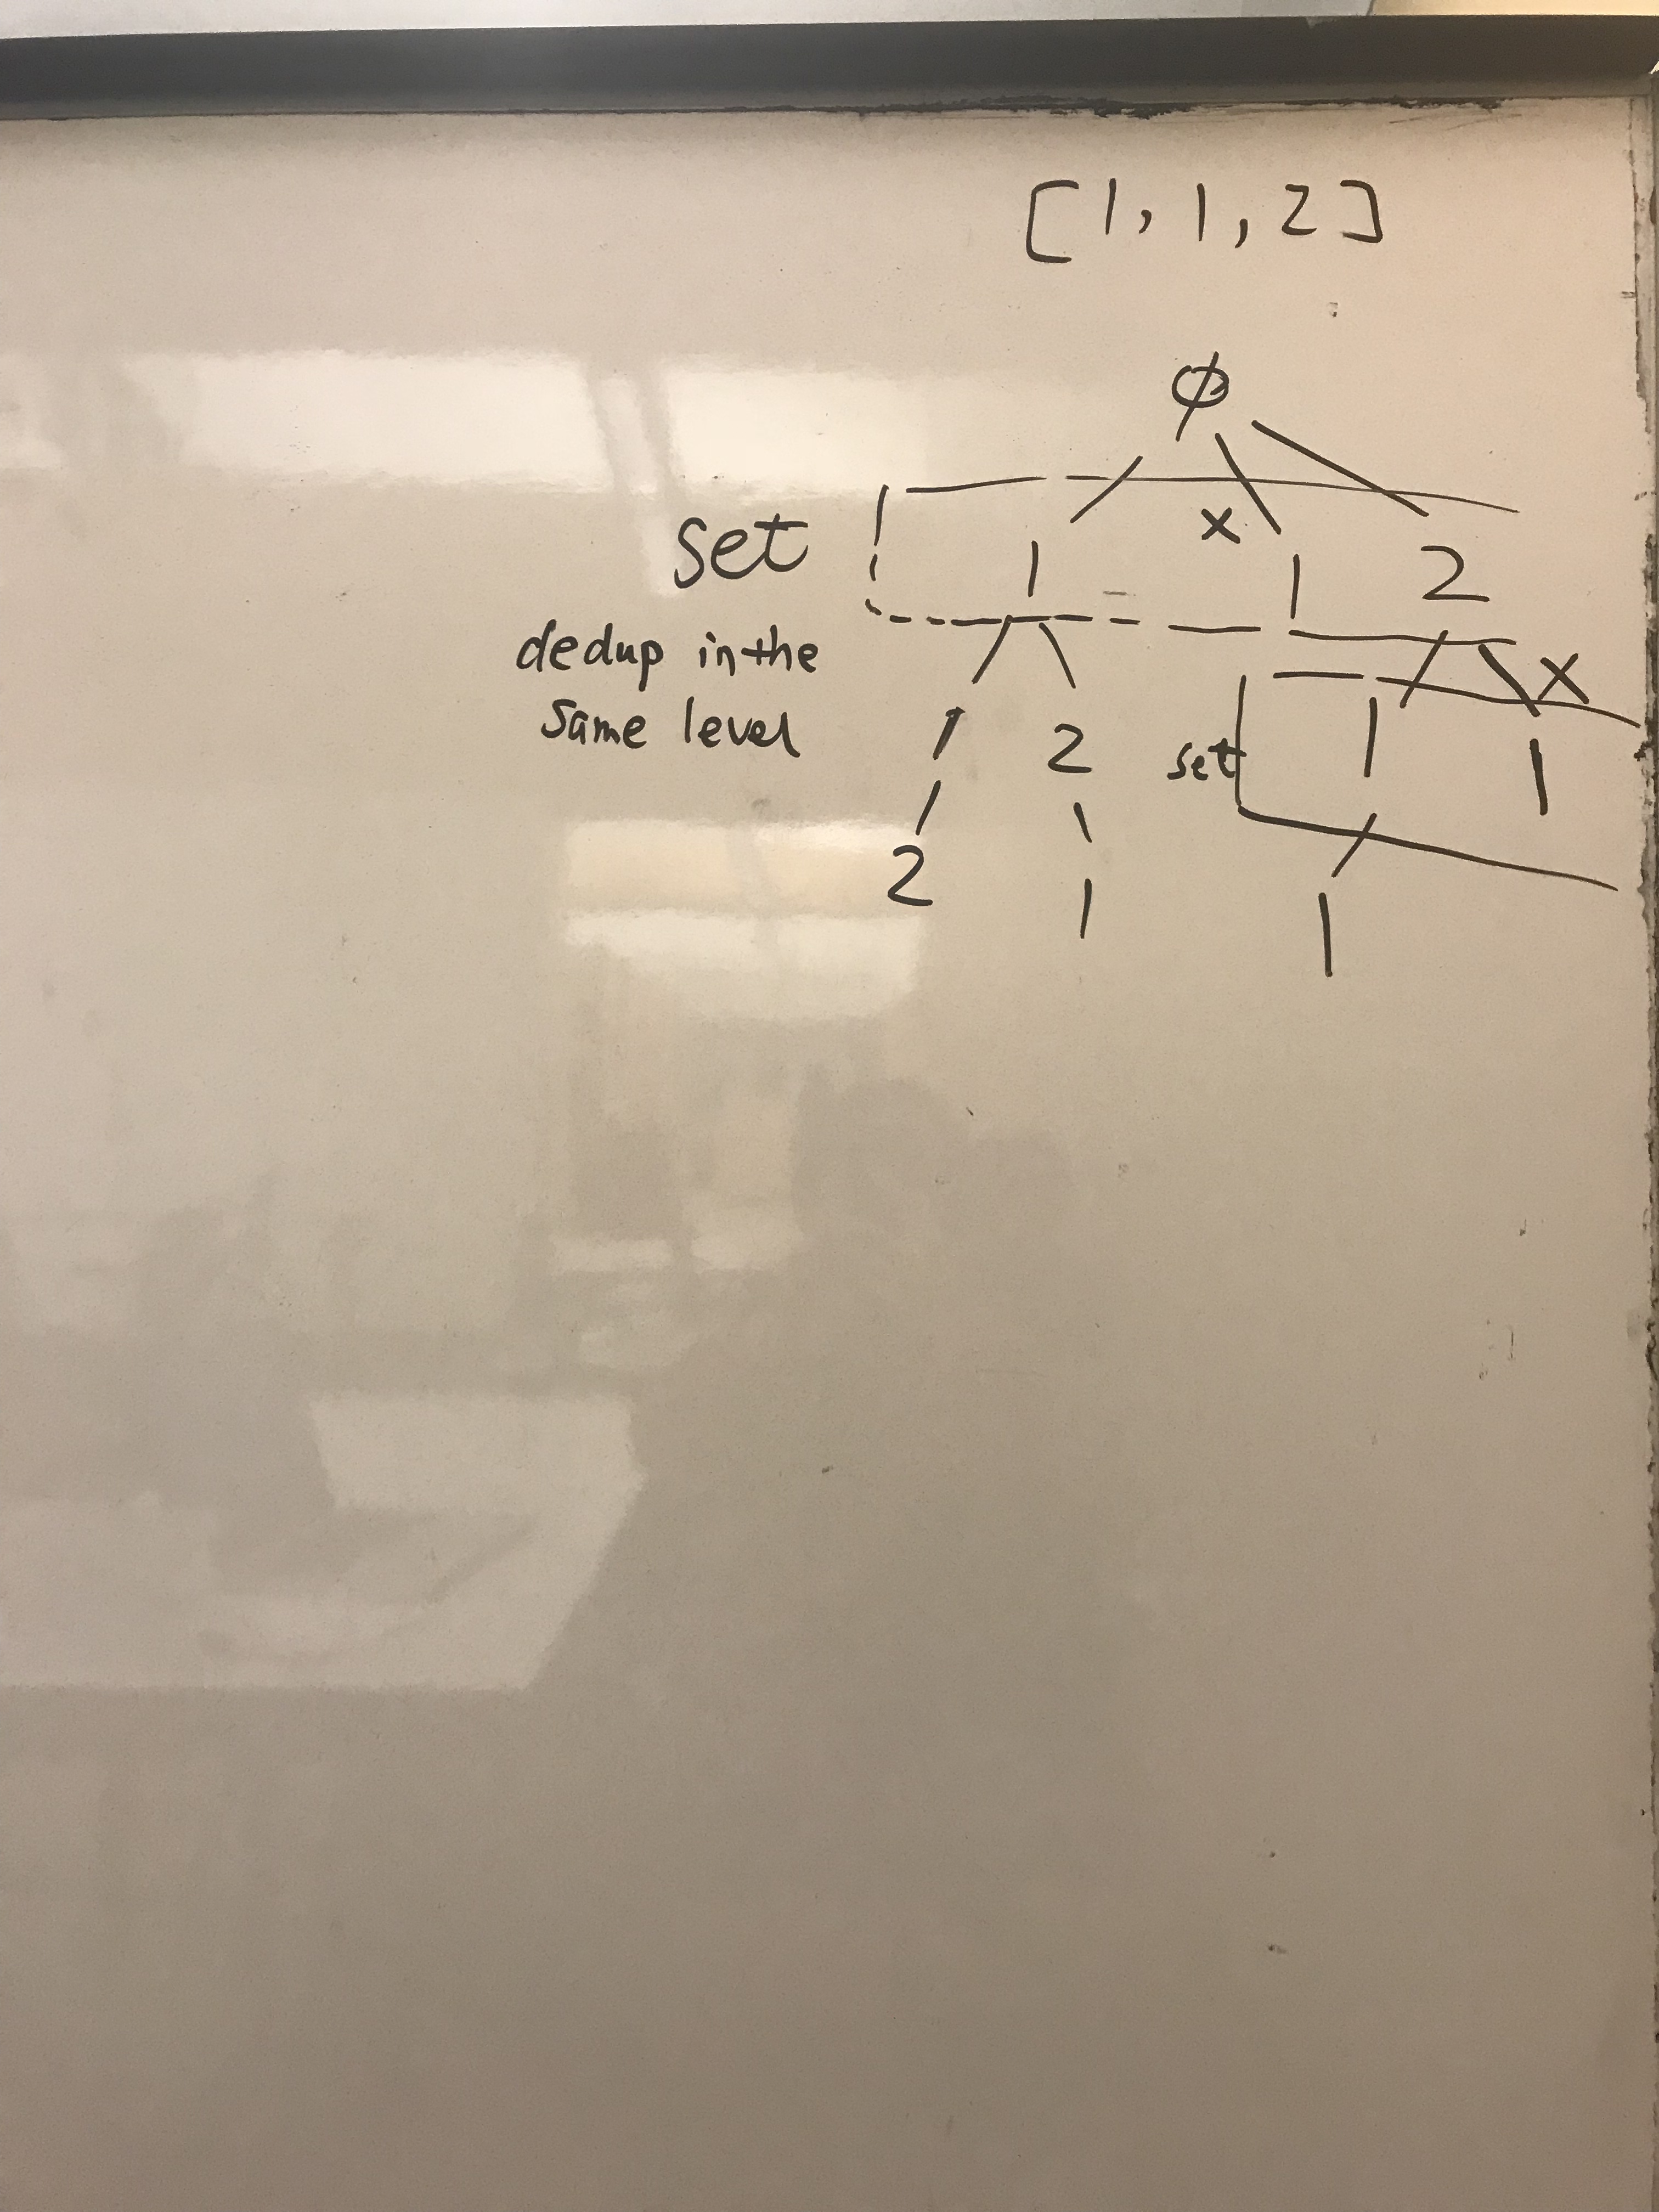 [1, 1, 2]
∅
set
x
1
1
2
dedup in the
same level
x
1
2
set
1
1
2
1
1